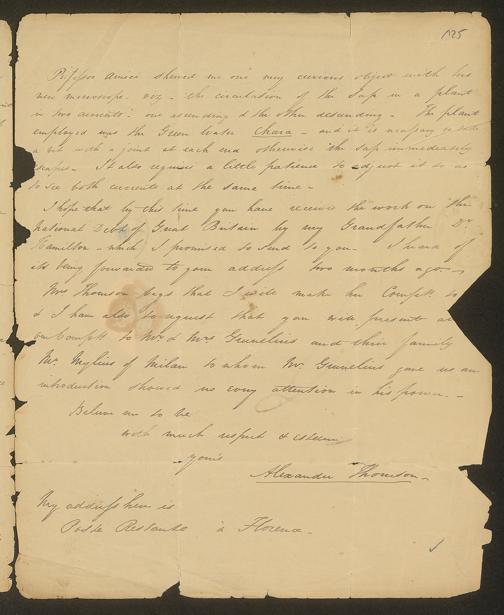 125
Professor Amici showed me one very curious object with his
new microscope. viz - the circulation of the Sap in a plant
in two currents: one ascending & the other descending - The plant
employed was the Green Water Chara - and it is necessary to take
a with a joint at each end otherwise the Sap immediately
escapes - It also requires a little patience to adjust it so as
to see both currents at the same time -
I hope that by this time you have received the work on the
National Debt of Great Britain by my Grandfather Dr
Hamilton - which I promised to send to you - I heard of
its being forwarded to your address two months ago -
Mrs Thomson begs that I will make her Compts to
& I have also to request that you will present
our Compts to Mr & Mrs Grunelius and their family
Mr Mylius of Milan to whom Mr Grunelius gave us an
introduction showed us every attention in his power -
Believe me to be
with much respect & esteem
yours
Alexander Thomson -
My address here is
Poste Restante à Florence -